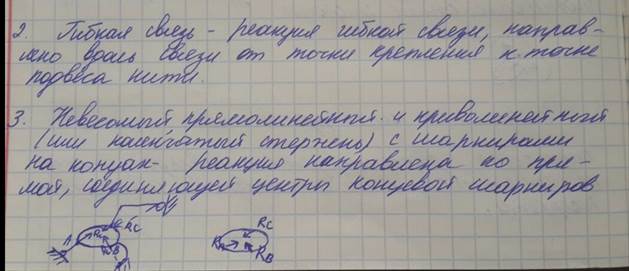 2. Гибкая связь - реакция гибкой связи, направ-
лено вдоль связи от точки крепления к точке
подвеса нити.
3. Невесомый, прямолинейный и криволинейный
(или коленчатый стержень) с шарнирами
на концах - реакция направлена по пря-
мой, соединяющей центры концевой шарниров
A RA RC RB
RC
RA RB